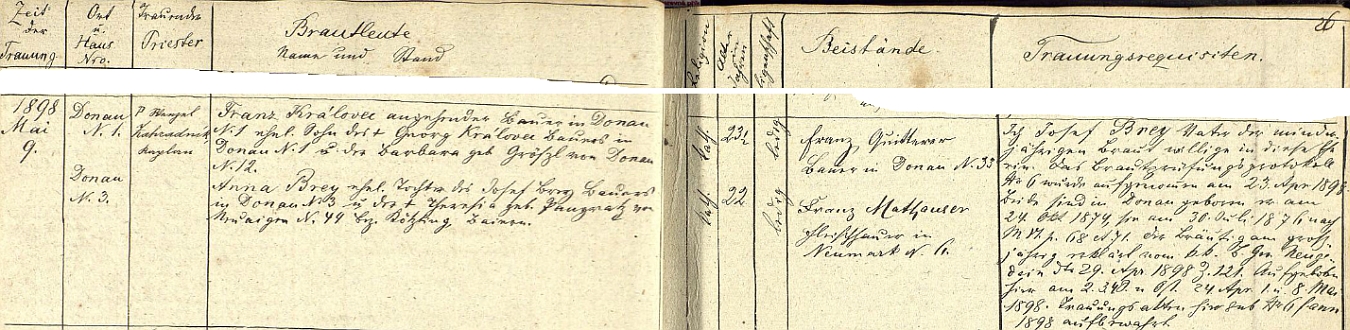 Zeit
der
Trauung
Ort
u.
Haus
Nro.
Trauender
Priester
Brautleute
Name und Stand
Religion
Alter in Jahren
Beistände.
Trauungsrequisiten.
26
1898
Mai
9.
Donau
N. 1.
Donau
N. 3.
P. Wenzel
Kaplan
Franz Královec angehender Bauer in Donau
N. 1 ehel. Sohn des † Georg Královec Bauers in
Donau N. 1 u. der Barbara geb. Gröszl von Donau
N. 12.
Anna Brey ehel. Tochter des Josef Brey Bauers
in Donau N. 3 u. der † Theresia geb. Pangratz von
Neuaign N. 44 Bez. Kötzting, Baiern.
kath.
23½
ledig
kath.
22
ledig
Franz Quitterer
Bauer in Donau N. 33
Franz Mathauser
Fleischhauer in
Neumark N. 6.
Ich Josef Brey Vater der minder-
jährigen Braut willige in diese Ehe
ein. Das Brautprüfungsprotokoll
N. 6 wurde aufgenommen am 23. Apr. 1898.
Beide sind in Donau geboren er am
24. Okt. 1874, sie am 30. Juli 1876 nach
68 et 71. Der Bräutigam groß-
jährig erklärt vom k.k. B. Ger. Neuge-
dein dto 29. Apr. 1898 Z. 121. Aufgeboten
hier am 2. 3 u. 24. Apr. 1. u. 8. Mai
1898. Trauungsakten hier sub N. 6 Fasc.
1898 aufbewahrt.